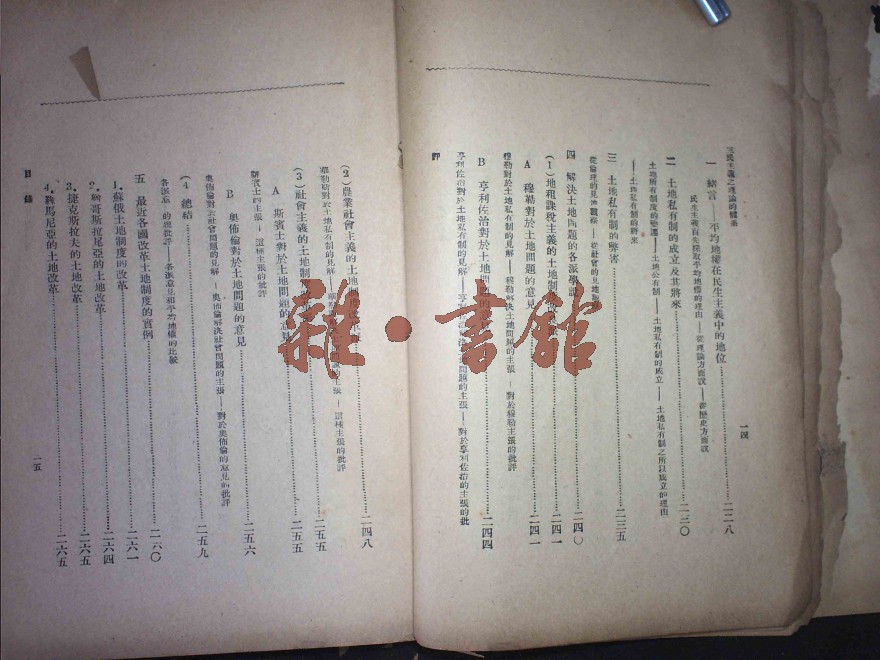 三民主義之理論的體系
一 緒言——平均地權在民生主義中的地位……二一八
民生主義首先採取平均地權的理由——從理論方面說——從歷史方面說
二 土地私有制的成立及其將來……二二〇
土地所有制度的變遷——土地公有制——土地私有制的成立——土地私有制之所以成立的理由
——土地私有制的將來
三 土地私有制的弊害……二三五
從倫理的見地觀察——從社會的見地觀察
四 解決土地問題的各派學說……二四〇
(1)地租課稅主義的土地制度改革……二四一
A 穆勒對於土地問題的意見……二四一
穆勒對於土地私有制的見解——穆勒解決土地問題的主張——對於穆勒主張的批評
B 亨利佐治對於土地問題的意見……二四四
亨利佐治對於土地私有制的見解——亨利佐治解決土地問題的主張——對於亨利佐治的主張的批
評
一四
(2)農業社會主義的土地制度改革……二四八
華勒斯對於土地私有制的見解——華勒斯的主張——這種主張的批評
(3)社會主義的土地制度改革……二五五
A 斯賓士對於土地問題的意見……二五五
斯賓士的主張——這種主張的批評
B 奧佈倫對於土地問題的意見……二五六
奧佈倫對於社會問題的見解——奧佈倫解決社會問題的主張——對於奧佈倫的意見的批評
(4)總結……二五九
各派意見的總批評——各派意見和平均地權的比較
五 最近各國改革土地制度的實例……二六〇
1.蘇俄土地制度的改革……二六一
2.朔哥斯拉尾亞的土地改革……二六四
3.捷克斯拉夫的土地改革……二六五
4.羅馬尼亞的土地改革……二六五
目錄
一五
雜·書館